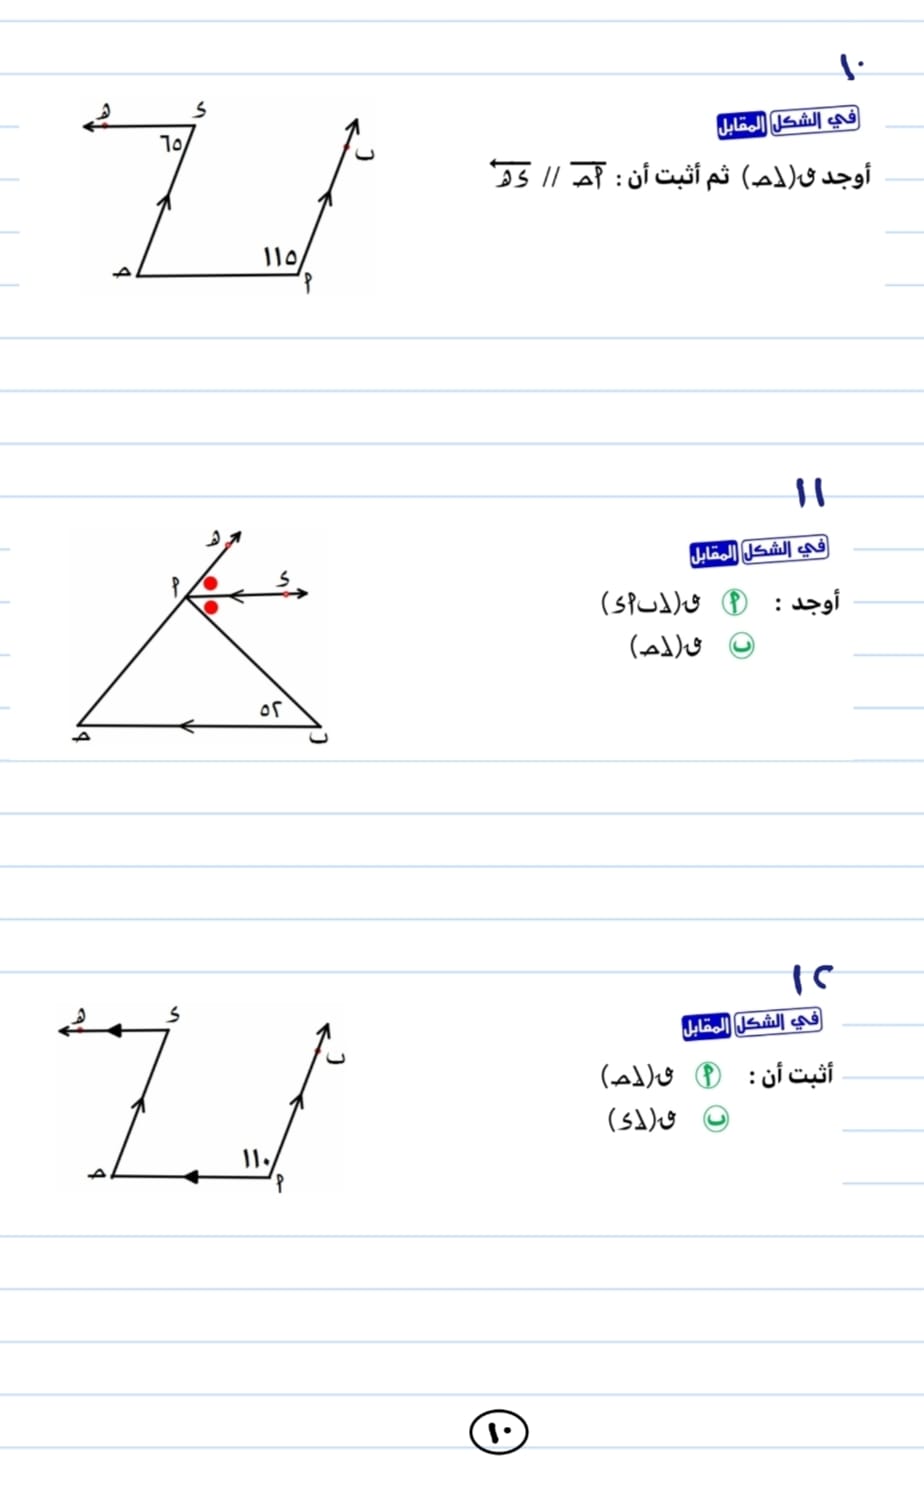 ١٠
في الشكل المقابل
أوجد ق(∠حـ) ثم أثبت أن : أحـ // ءهـ
هـ
ء
٦٥
ب
١١٥
حـ
أ
١١
في الشكل المقابل
أوجد : أ ق(∠ب أ ء)
ب ق(∠حـ)
هـ
أ
ء
٥٢
حـ
ب
١٢
في الشكل المقابل
أثبت أن : أ ق(∠حـ)
ب ق(∠ء)
هـ
ء
ب
١١٠
حـ
أ
١٠